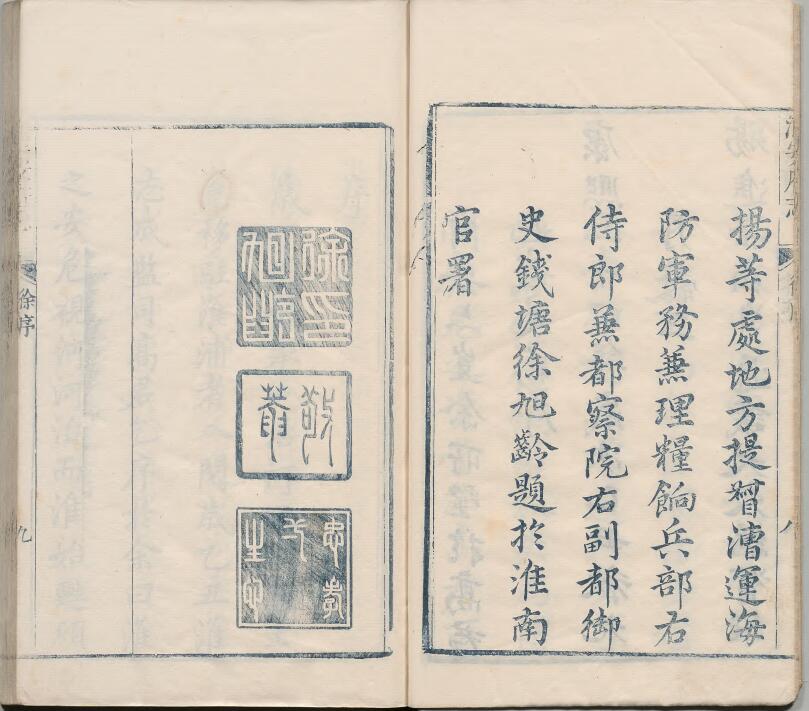 揚等處地方提督漕運海
防軍務兼理糧餉兵部右
侍郎兼都察院右副都御
史錢塘徐旭齡題於淮南
官署
八
徐印
旭齡
敬菴
忠孝
之心
徐序
九